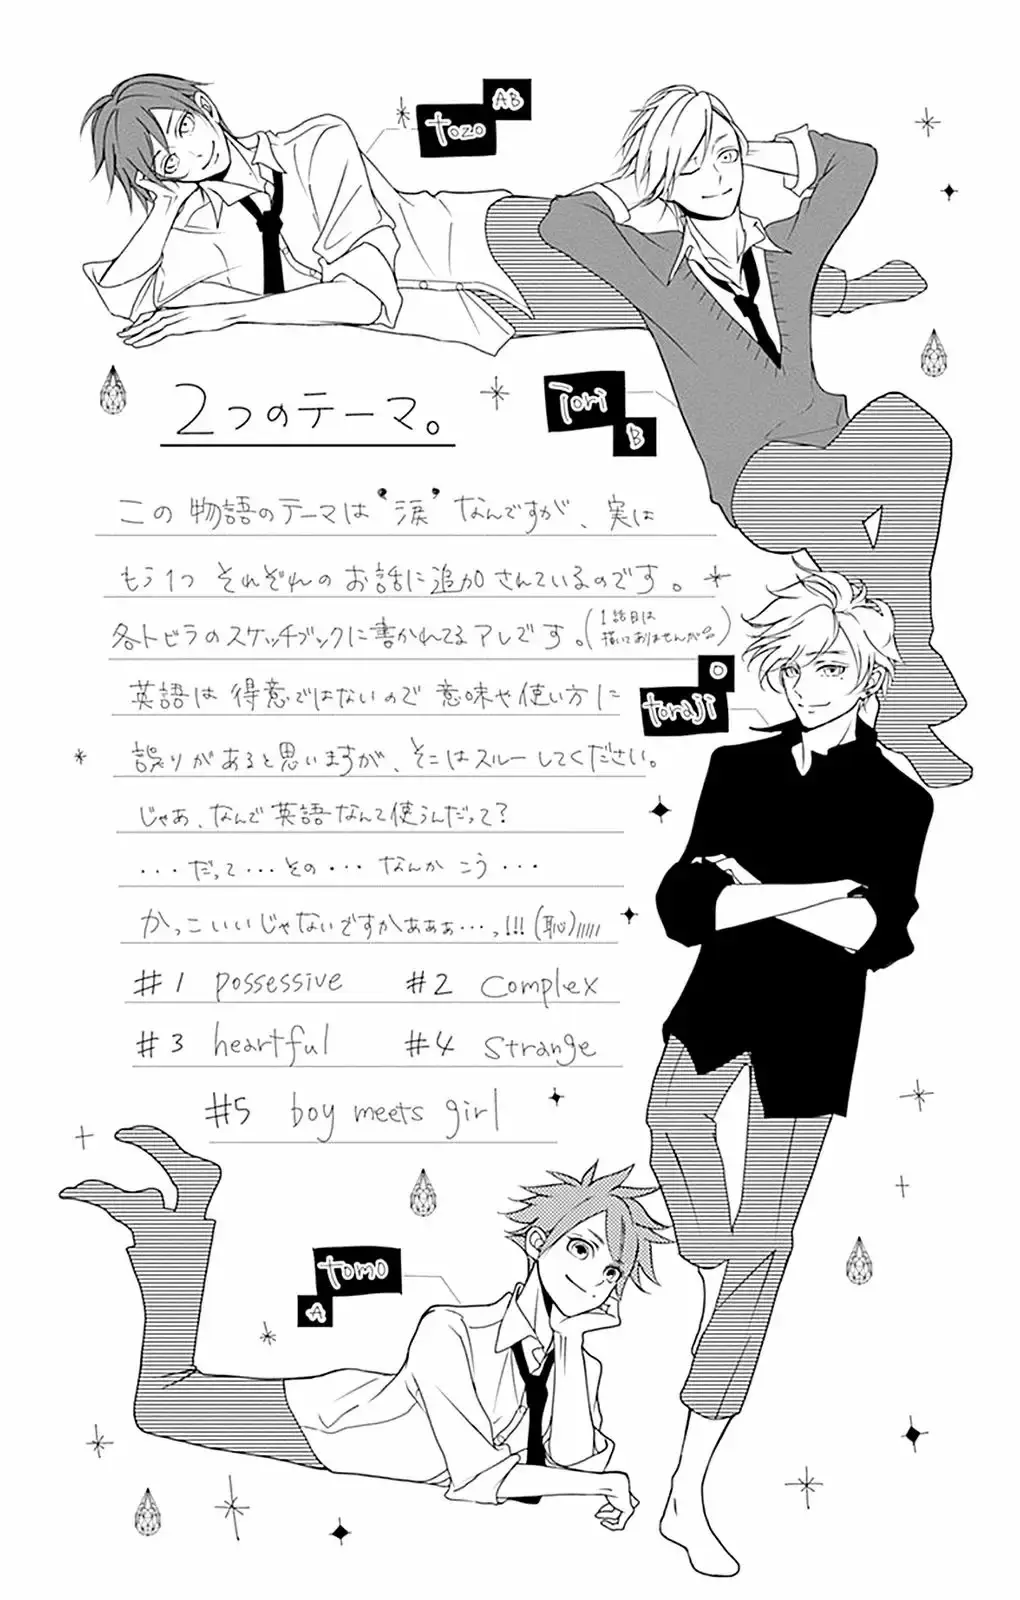 tozo
AB
iori
B
2つのテーマ。
この物語のテーマは“涙”なんですが、実は
もう1つそれぞれのお話に追加されているのです。
各トビラのスケッチブックに書かれてるアレです。(1話目は
描いておりませんが
)
英語は得意ではないので意味や使い方に
誤りがあると思いますが、そこはスルーしてください。
じゃあ、なんで英語なんて使うんだって?
・・・だって・・・その・・・なんかこう・・・
かっこいいじゃないですかぁぁぁ・・・っ!!!(恥)/////
#1 possessive #2 complex
#3 heartful #4 strange
#5 boy meets girl
O
toraji
tomo
A